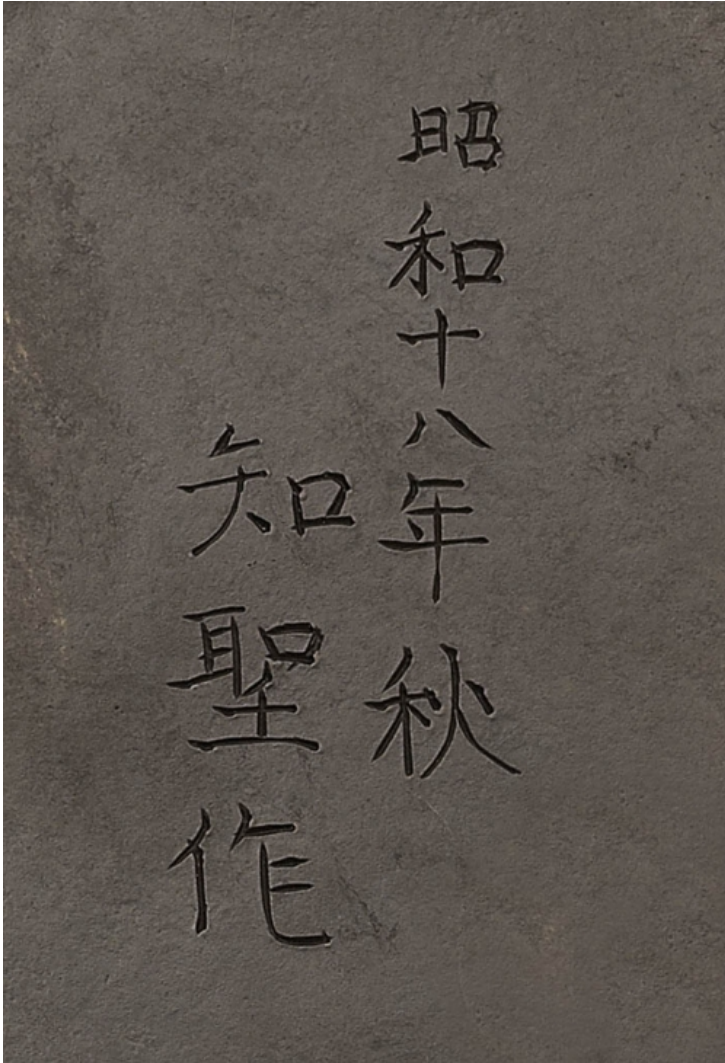 昭和十八年秋
知聖作